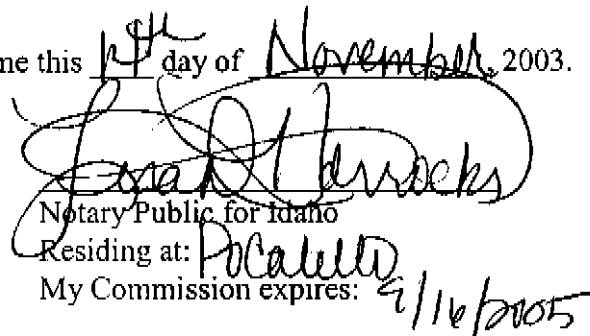 me this day of November, 2003.
Horrocks
Notary Public for Idaho
Residing at: Pocatello
My Commission expires: 9/16/2005